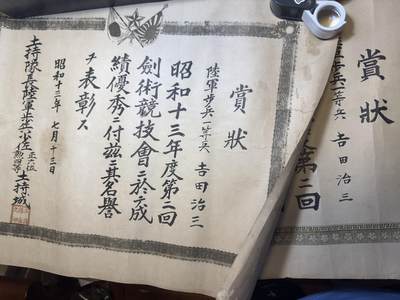 賞狀
兵一等兵 吉田治三
第二回
賞狀
陸軍歩兵一等兵 吉田治三
昭和十三年度第二回
劍術競技會ニ於テ成
績優秀ニ付茲ニ其名譽
ヲ表彰ス
昭和十三年七月十三日
土持隊長陸軍歩兵少佐 土持城